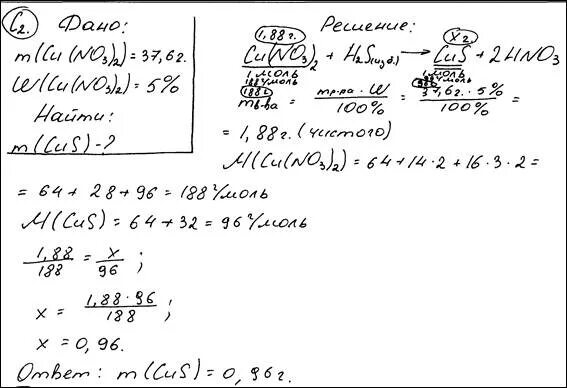 C2. Дано:
m(Cu(NO3)2) = 37,6г.
W(Cu(NO3)2) = 5%
Найти:
m(CuS) - ?
Решение:
1,88г. xг.
Cu(NO3)2 + H2S(изб.) → CuS + 2HNO3
1 моль 1 моль
188г/моль
188г
mв-ва = mр-ра · W / 100% = 37,6г. · 5% / 100% =
= 1,88г. (чистого)
M(Cu(NO3)2) = 64 + 14 · 2 + 16 · 3 · 2 =
= 64 + 28 + 96 = 188г/моль
M(CuS) = 64 + 32 = 96г/моль
1,88 / 188 = x / 96 ;
x = 1,88 · 96 / 188 ;
x = 0,96.
Ответ: m(CuS) = 0,96г.